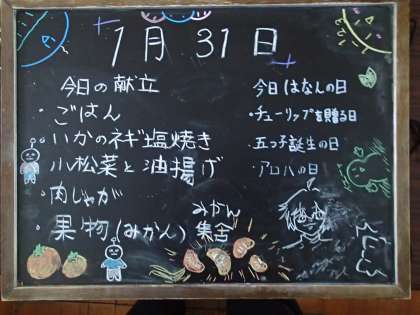 1月31日
今日の献立
・ごはん
・いかのネギ塩焼き
小松菜と油揚げ
・肉じゃが
・果物(みかん)
みかん
集合
今日はなんの日
・チューリップを贈る日
・五つ子誕生の日
・アロハの日